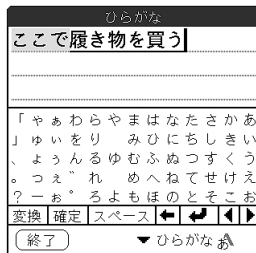 ひらがな
ここで履き物を買う
「 ゃ ぁ わ ら や ま は な た さ か あ
」 ゅ ぃ を り み ひ に ち し き い
、 ょ ぅ ん る ゆ む ふ ぬ つ す く う
。 っ ぇ ゛ れ め へ ね て せ け え
? ー ぉ ゜ ろ よ も ほ の と そ こ お
変換 確定 スペース
終了 ひらがな あA